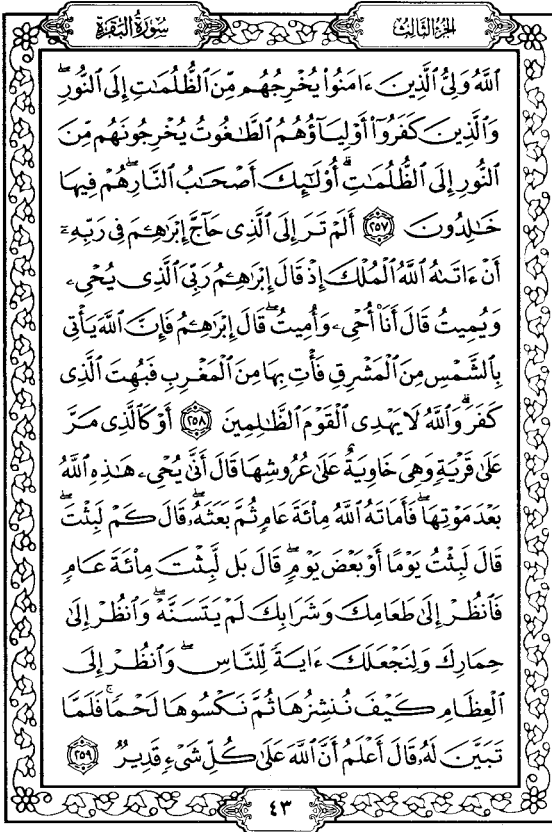 الجزء الثالث
سورة البقرة
اللَّهُ وَلِيُّ الَّذِينَ ءَامَنُوا يُخْرِجُهُم مِّنَ الظُّلُمَٰتِ إِلَى النُّورِ ۖ
وَالَّذِينَ كَفَرُوٓا أَوْلِيَآؤُهُمُ الطَّٰغُوتُ يُخْرِجُونَهُم مِّنَ
النُّورِ إِلَى الظُّلُمَٰتِ ۗ أُولَٰٓئِكَ أَصْحَٰبُ النَّارِ ۖ هُمْ فِيهَا
خَٰلِدُونَ ٢٥٧ أَلَمْ تَرَ إِلَى الَّذِى حَآجَّ إِبْرَٰهِۦمَ فِى رَبِّهِۦٓ
أَنْ ءَاتَىٰهُ اللَّهُ الْمُلْكَ إِذْ قَالَ إِبْرَٰهِۦمُ رَبِّىَ الَّذِى يُحْىِۦ
وَيُمِيتُ قَالَ أَنَا۠ أُحْىِۦ وَأُمِيتُ ۖ قَالَ إِبْرَٰهِۦمُ فَإِنَّ اللَّهَ يَأْتِى
بِالشَّمْسِ مِنَ الْمَشْرِقِ فَأْتِ بِهَا مِنَ الْمَغْرِبِ فَبُهِتَ الَّذِى
كَفَرَ ۗ وَاللَّهُ لَا يَهْدِى الْقَوْمَ الظَّٰلِمِينَ ٢٥٨ أَوْ كَالَّذِى مَرَّ
عَلَىٰ قَرْيَةٍ وَهِىَ خَاوِيَةٌ عَلَىٰ عُرُوشِهَا قَالَ أَنَّىٰ يُحْىِۦ هَٰذِهِ اللَّهُ
بَعْدَ مَوْتِهَا ۖ فَأَمَاتَهُ اللَّهُ مِا۟ئَةَ عَامٍ ثُمَّ بَعَثَهُۥ ۖ قَالَ كَمْ لَبِثْتَ ۖ
قَالَ لَبِثْتُ يَوْمًا أَوْ بَعْضَ يَوْمٍ ۖ قَالَ بَل لَّبِثْتَ مِا۟ئَةَ عَامٍ
فَانظُرْ إِلَىٰ طَعَامِكَ وَشَرَابِكَ لَمْ يَتَسَنَّهْ ۖ وَانظُرْ إِلَىٰ
حِمَارِكَ وَلِنَجْعَلَكَ ءَايَةً لِّلنَّاسِ ۖ وَانظُرْ إِلَى
الْعِظَامِ كَيْفَ نُنشِزُهَا ثُمَّ نَكْسُوهَا لَحْمًا ۚ فَلَمَّا
تَبَيَّنَ لَهُۥ قَالَ أَعْلَمُ أَنَّ اللَّهَ عَلَىٰ كُلِّ شَىْءٍ قَدِيرٌ ٢٥٩
٤٣